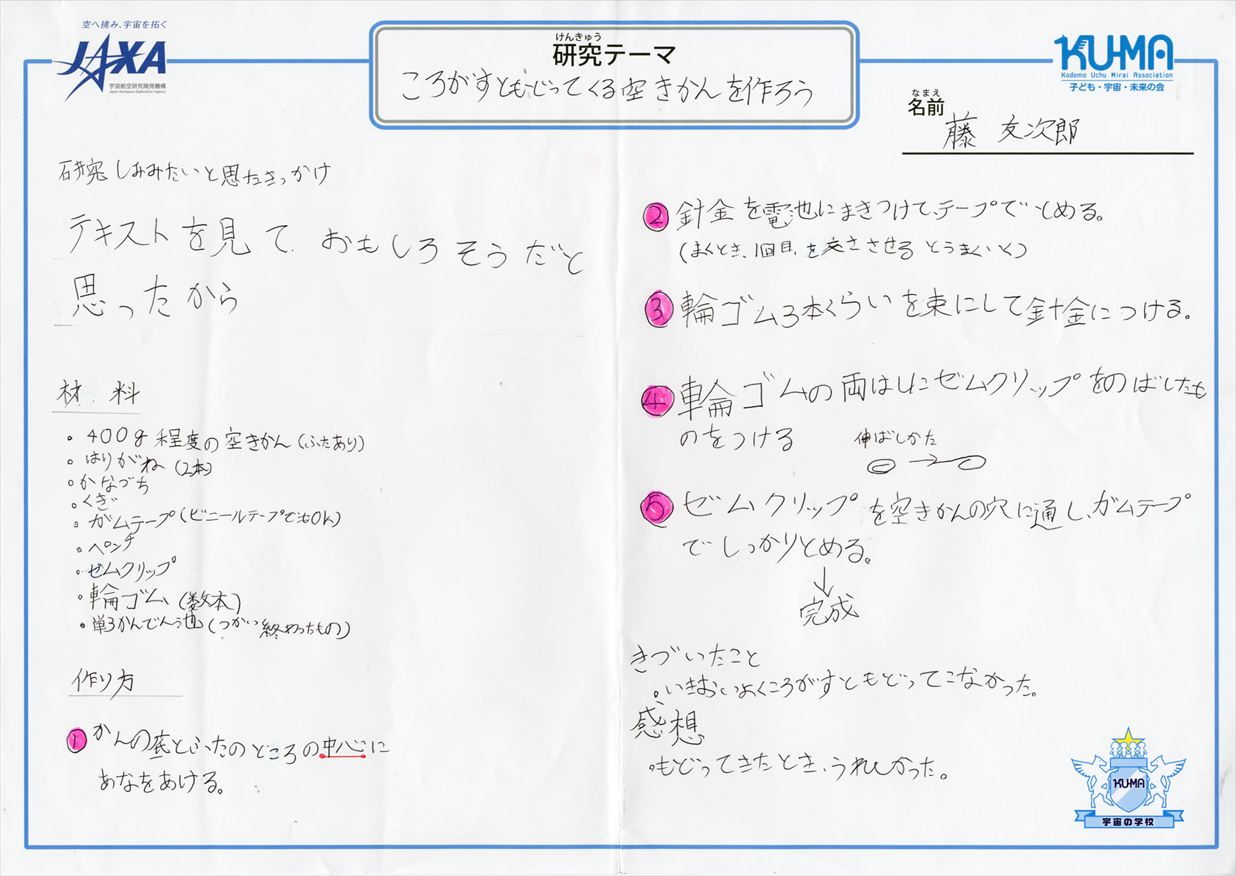 空へ挑み、宇宙を拓く
JAXA
宇宙航空研究開発機構
Japan Aerospace Exploration Agency
けんきゅう
研究テーマ
ころがすともどってくる空きかんを作ろう
KU-MA
Kodomo Uchu Mirai Association
子ども・宇宙・未来の会
なまえ
名前
藤 友次郎
研究しみみたいと思たきっかけ
テキストを見て、おもしろそうだと
思ったから
材料
・400g程度の空きかん(ふたあり)
・はりがね(2本)
・かなづち
・くぎ
・ガムテープ(ビニールテープでもOK)
・ペンチ
・ゼムクリップ
・輪ゴム(数本)
・単3かんでん池(つかい終わったもの)
作り方
1 かんの底とふたのところの中心に
あなをあける。
2 針金を電池にまきつけて、テープでとめる。
(まくとき、1回目を交ささせるとうまくいく)
3 輪ゴム3本くらいを束にして針金につける。
4 輪ゴムの両はしにゼムクリップをのばしたも
のをつける
伸ばしかた
5 ゼムクリップを空きかんの穴に通し、ガムテープ
でしっかりとめる。
↓
完成
きづいたこと
・いきおいよくころがすともどってこなかった。
感想
・もどってきたとき、うれしかった。
KU-MA
宇宙の学校